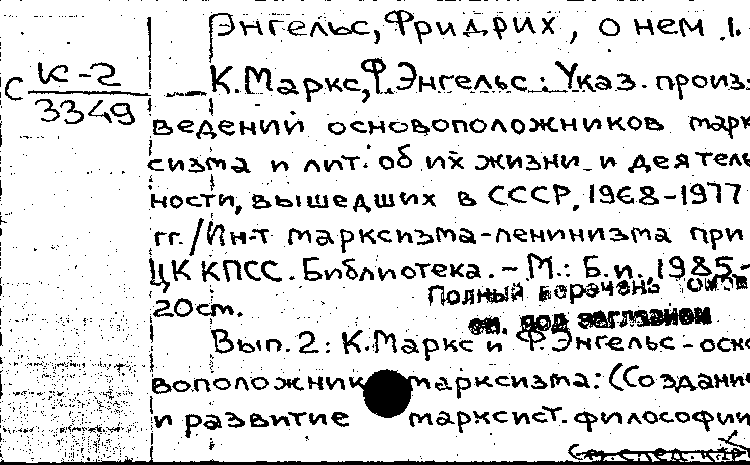 Энгельс, Фридрих, о нем 1.
С К-2
3349
К.Маркс, Ф.Энгельс: Указ. произ-
ведений основоположников марк
сизма и лит. об их жизни и деятель
ности, вышедших в СССР, 1968-1977
гг./Ин-т марксизма-ленинизма при
ЦК КПСС. Библиотека. - М.: Б.и., 1985.-
20см.
Полный перечень
см. под заглавием
Вып. 2: К.Маркс и Ф.Энгельс - осно
воположник марксизма: (Создание
и развитие марксист. философии
См. след. кар